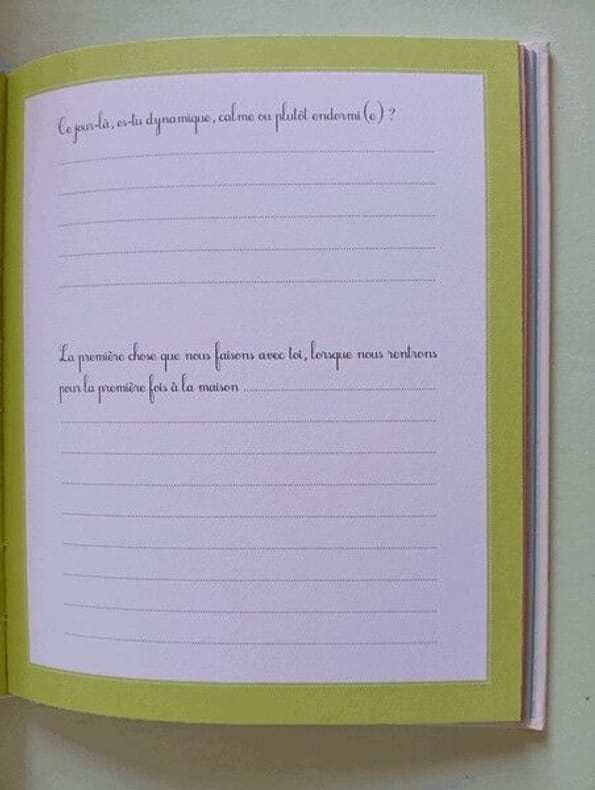 Ce jour-là, es-tu dynamique, calme ou plutôt endormi(e) ?
La première chose que nous faisons avec toi, lorsque nous rentrons
pour la première fois à la maison